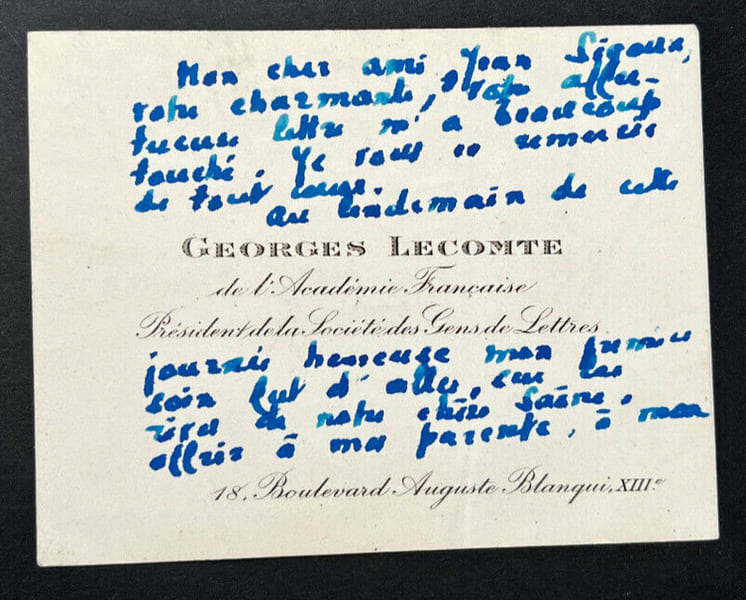 Mon cher ami Jean Sigaux,
votre charmante, votre affec-
tueuse lettre m'a beaucoup
touché. Je vous en remercie
de tout cœur.
Au lendemain de cette
GEORGES LECOMTE
de l'Académie Française
Président de la Société des Gens de Lettres
journée heureuse mon premier
soin fut d'aller, sur les
rives de notre chère Saône,
offrir à ma parente, à mon
18, Boulevard Auguste Blanqui, XIIIe